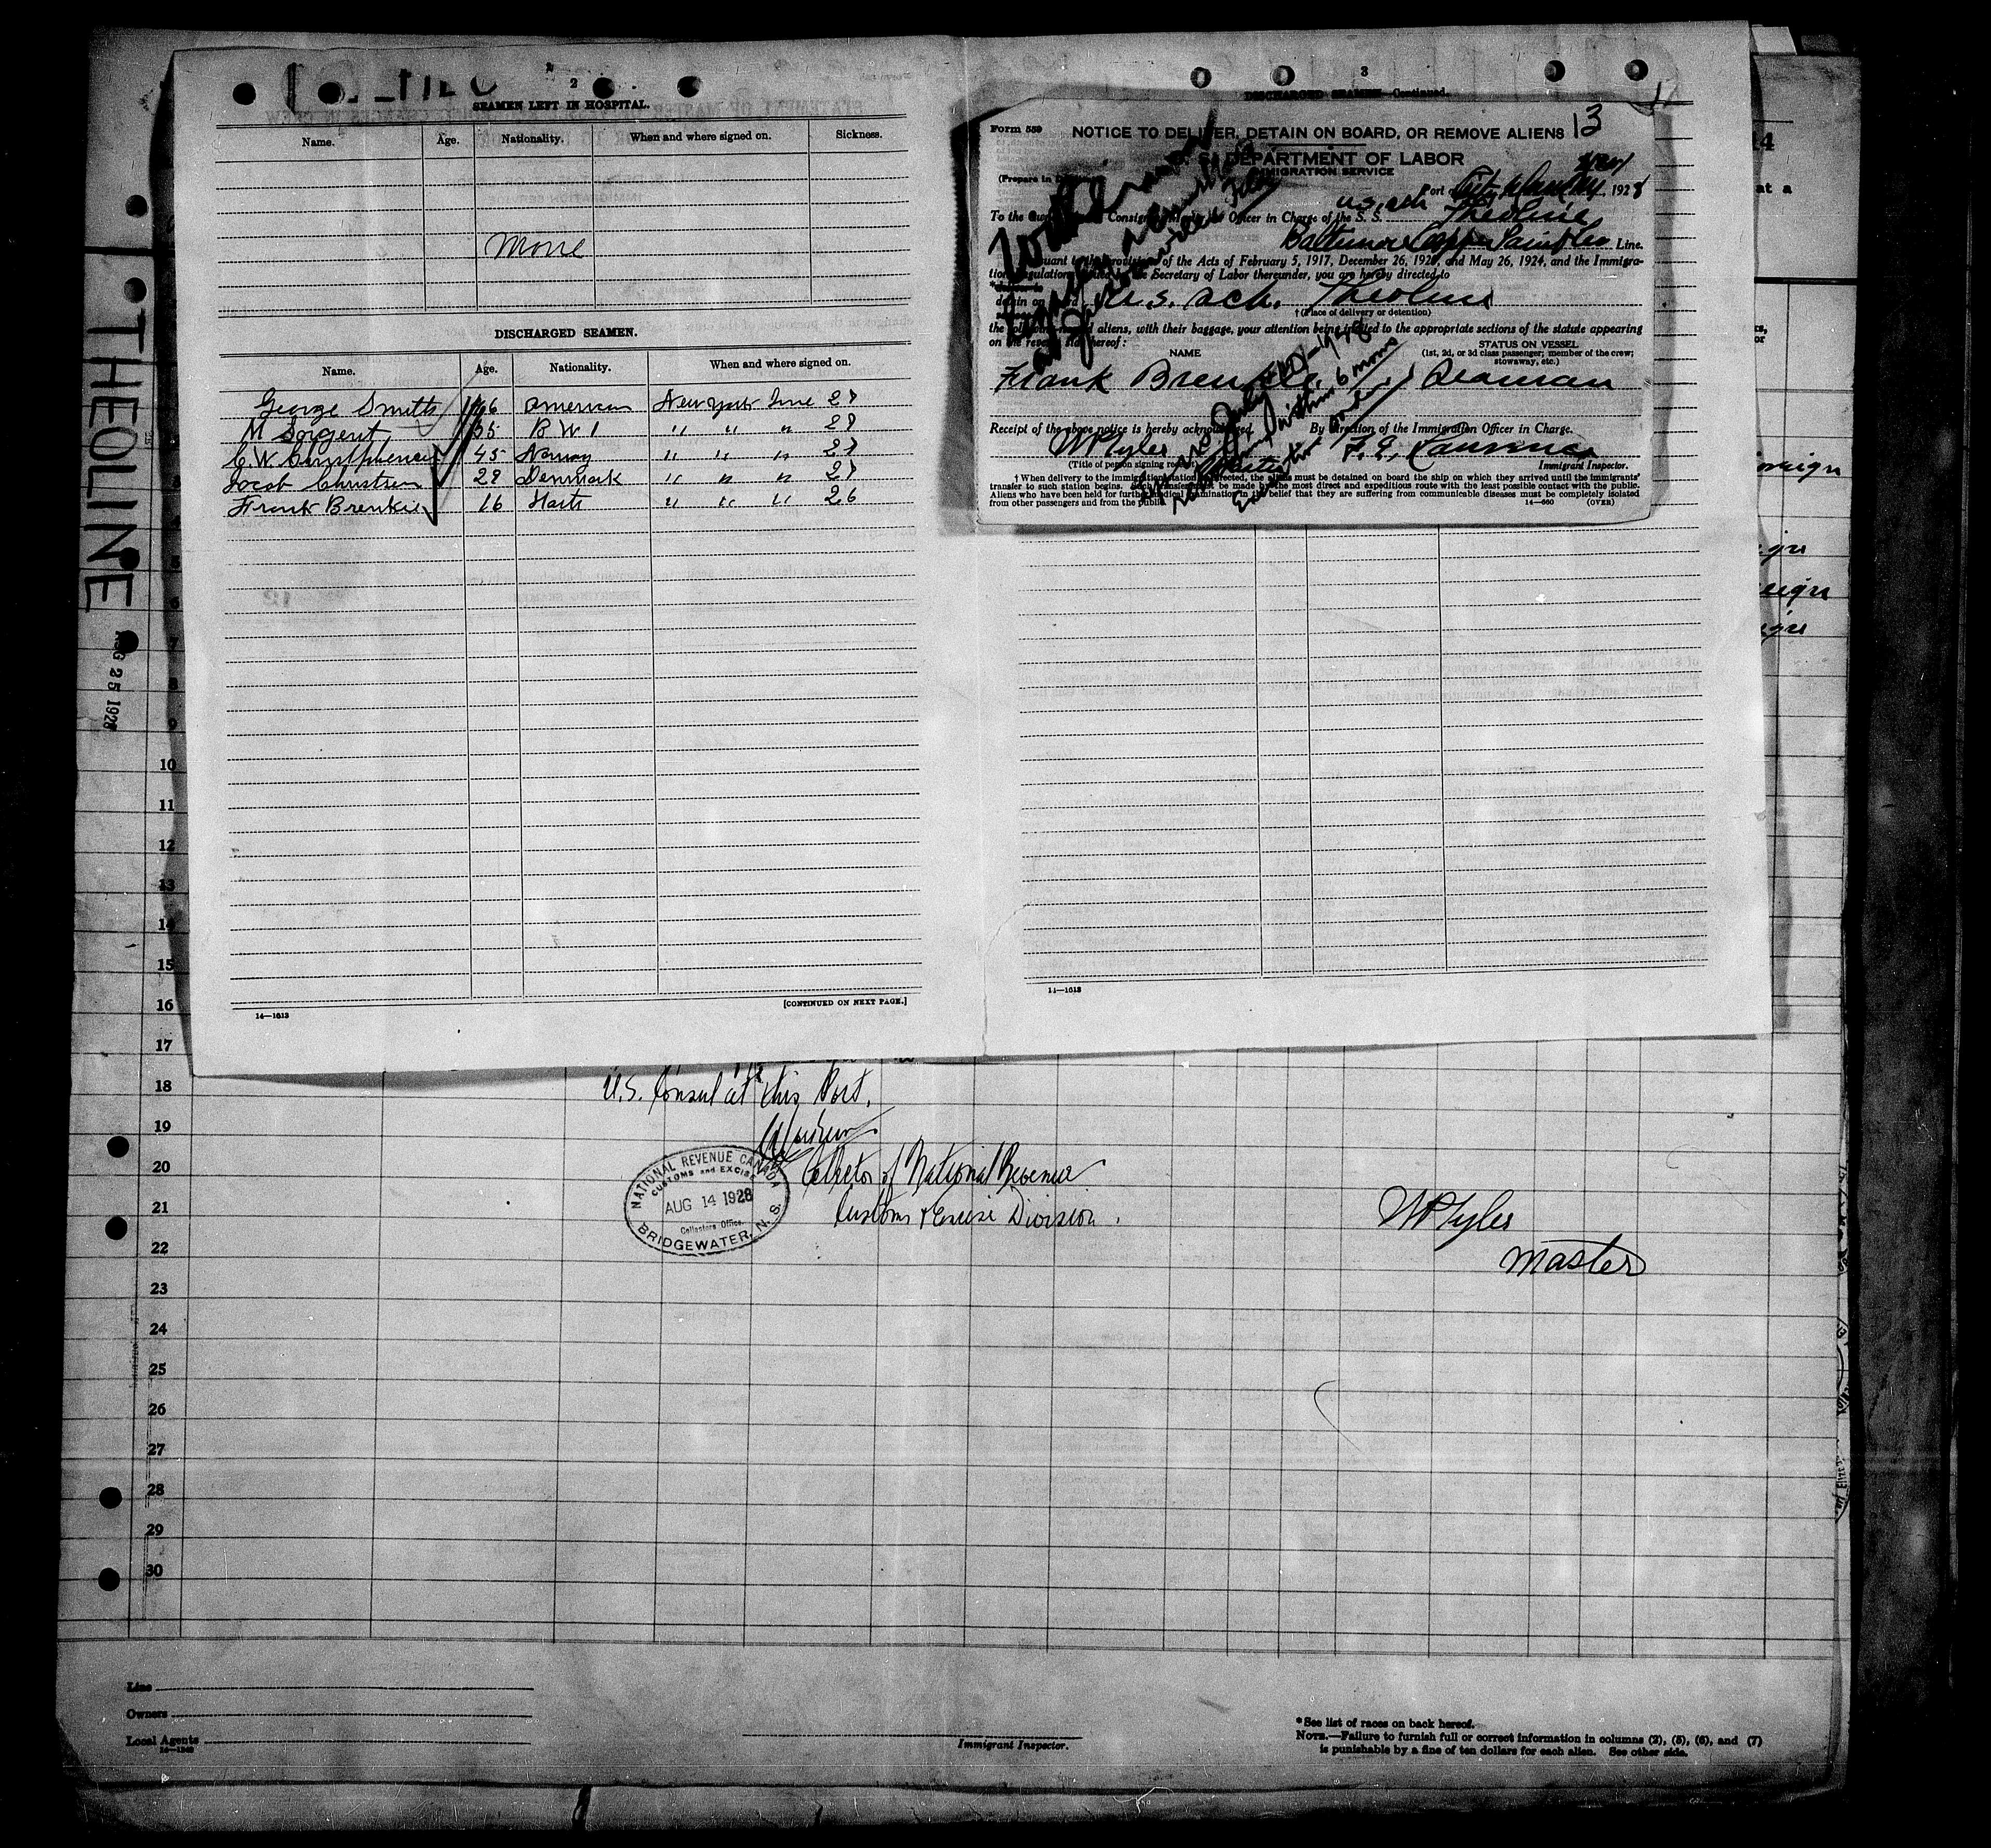 THEOLINE
AUG 25 1928
2
SEAMEN LEFT IN HOSPITAL.
Name. Age. Nationality. When and where signed on. Sickness.
None
DISCHARGED SEAMEN.
Name. Age. Nationality. When and where signed on.
George Smith 46 American New York June 28
M Sargent 35 B W I " " " 28
C. W. 45 Norway " " " 28
Jacob 28 Denmark " " " 28
Frank 16 " " " 26
[CONTINUED ON NEXT PAGE.]
14—1613
3
DISCHARGED SEAMEN—Continued.
14—1613
Form 559
NOTICE TO DELIVER, DETAIN ON BOARD, OR REMOVE ALIENS 13
U. S. DEPARTMENT OF LABOR
IMMIGRATION SERVICE
(Prepare in
Port of 1928
U.S. Sch
To the Consignees Officer in Charge of the S. S. Theoline
Baltimore Line.
provisions of the Acts of February 5, 1917, December 26, 1920, and May 26, 1924, and the Immigra-
tion Regulations Secretary of Labor thereunder, you are hereby directed to
detain on board U. S. Sch. Theoline
†(Place of delivery or detention)
the following named aliens, with their baggage, your attention being invited to the appropriate sections of the statute appearing
on the reverse side hereof:
NAME
STATUS ON VESSEL
(1st, 2d, or 3d class passenger; member of the crew;
stowaway, etc.)
Frank Seaman
Receipt of the above notice is hereby acknowledged. By direction of the Immigration Officer in Charge.
WPTyler
(Title of person signing receipt)
Immigrant Inspector.
† When delivery to the immigration station is directed, the aliens must be detained on board the ship on which they arrived until the immigrants'
transfer to such station begins. Such transfer must be made by the most direct and expeditious route with the least possible contact with the public.
Aliens who have been held for further medical examination in the belief that they are suffering from communicable diseases must be completely isolated
from other passengers and from the public.
14—660 (OVER)
Withdrawn
within 6 mos
4
5
6
7
8
9
10
11
12
13
14
15
16
17
18
19
20
21
22
23
24
25
26
27
28
29
30
U.S. Consul at this Port.
Collector of National Revenue
Customs & Excise Division.
NATIONAL REVENUE CANADA
CUSTOMS and EXCISE
AUG 14 1928
Collectors Office.
BRIDGEWATER, N. S.
WPTyler
Master
Line
Owners
Local Agents
14—1240
Immigrant Inspector.
* See list of races on back hereof.
NOTE.—Failure to furnish full or correct information in columns (2), (5), (6), and (7)
is punishable by a fine of ten dollars for each alien. See other side.